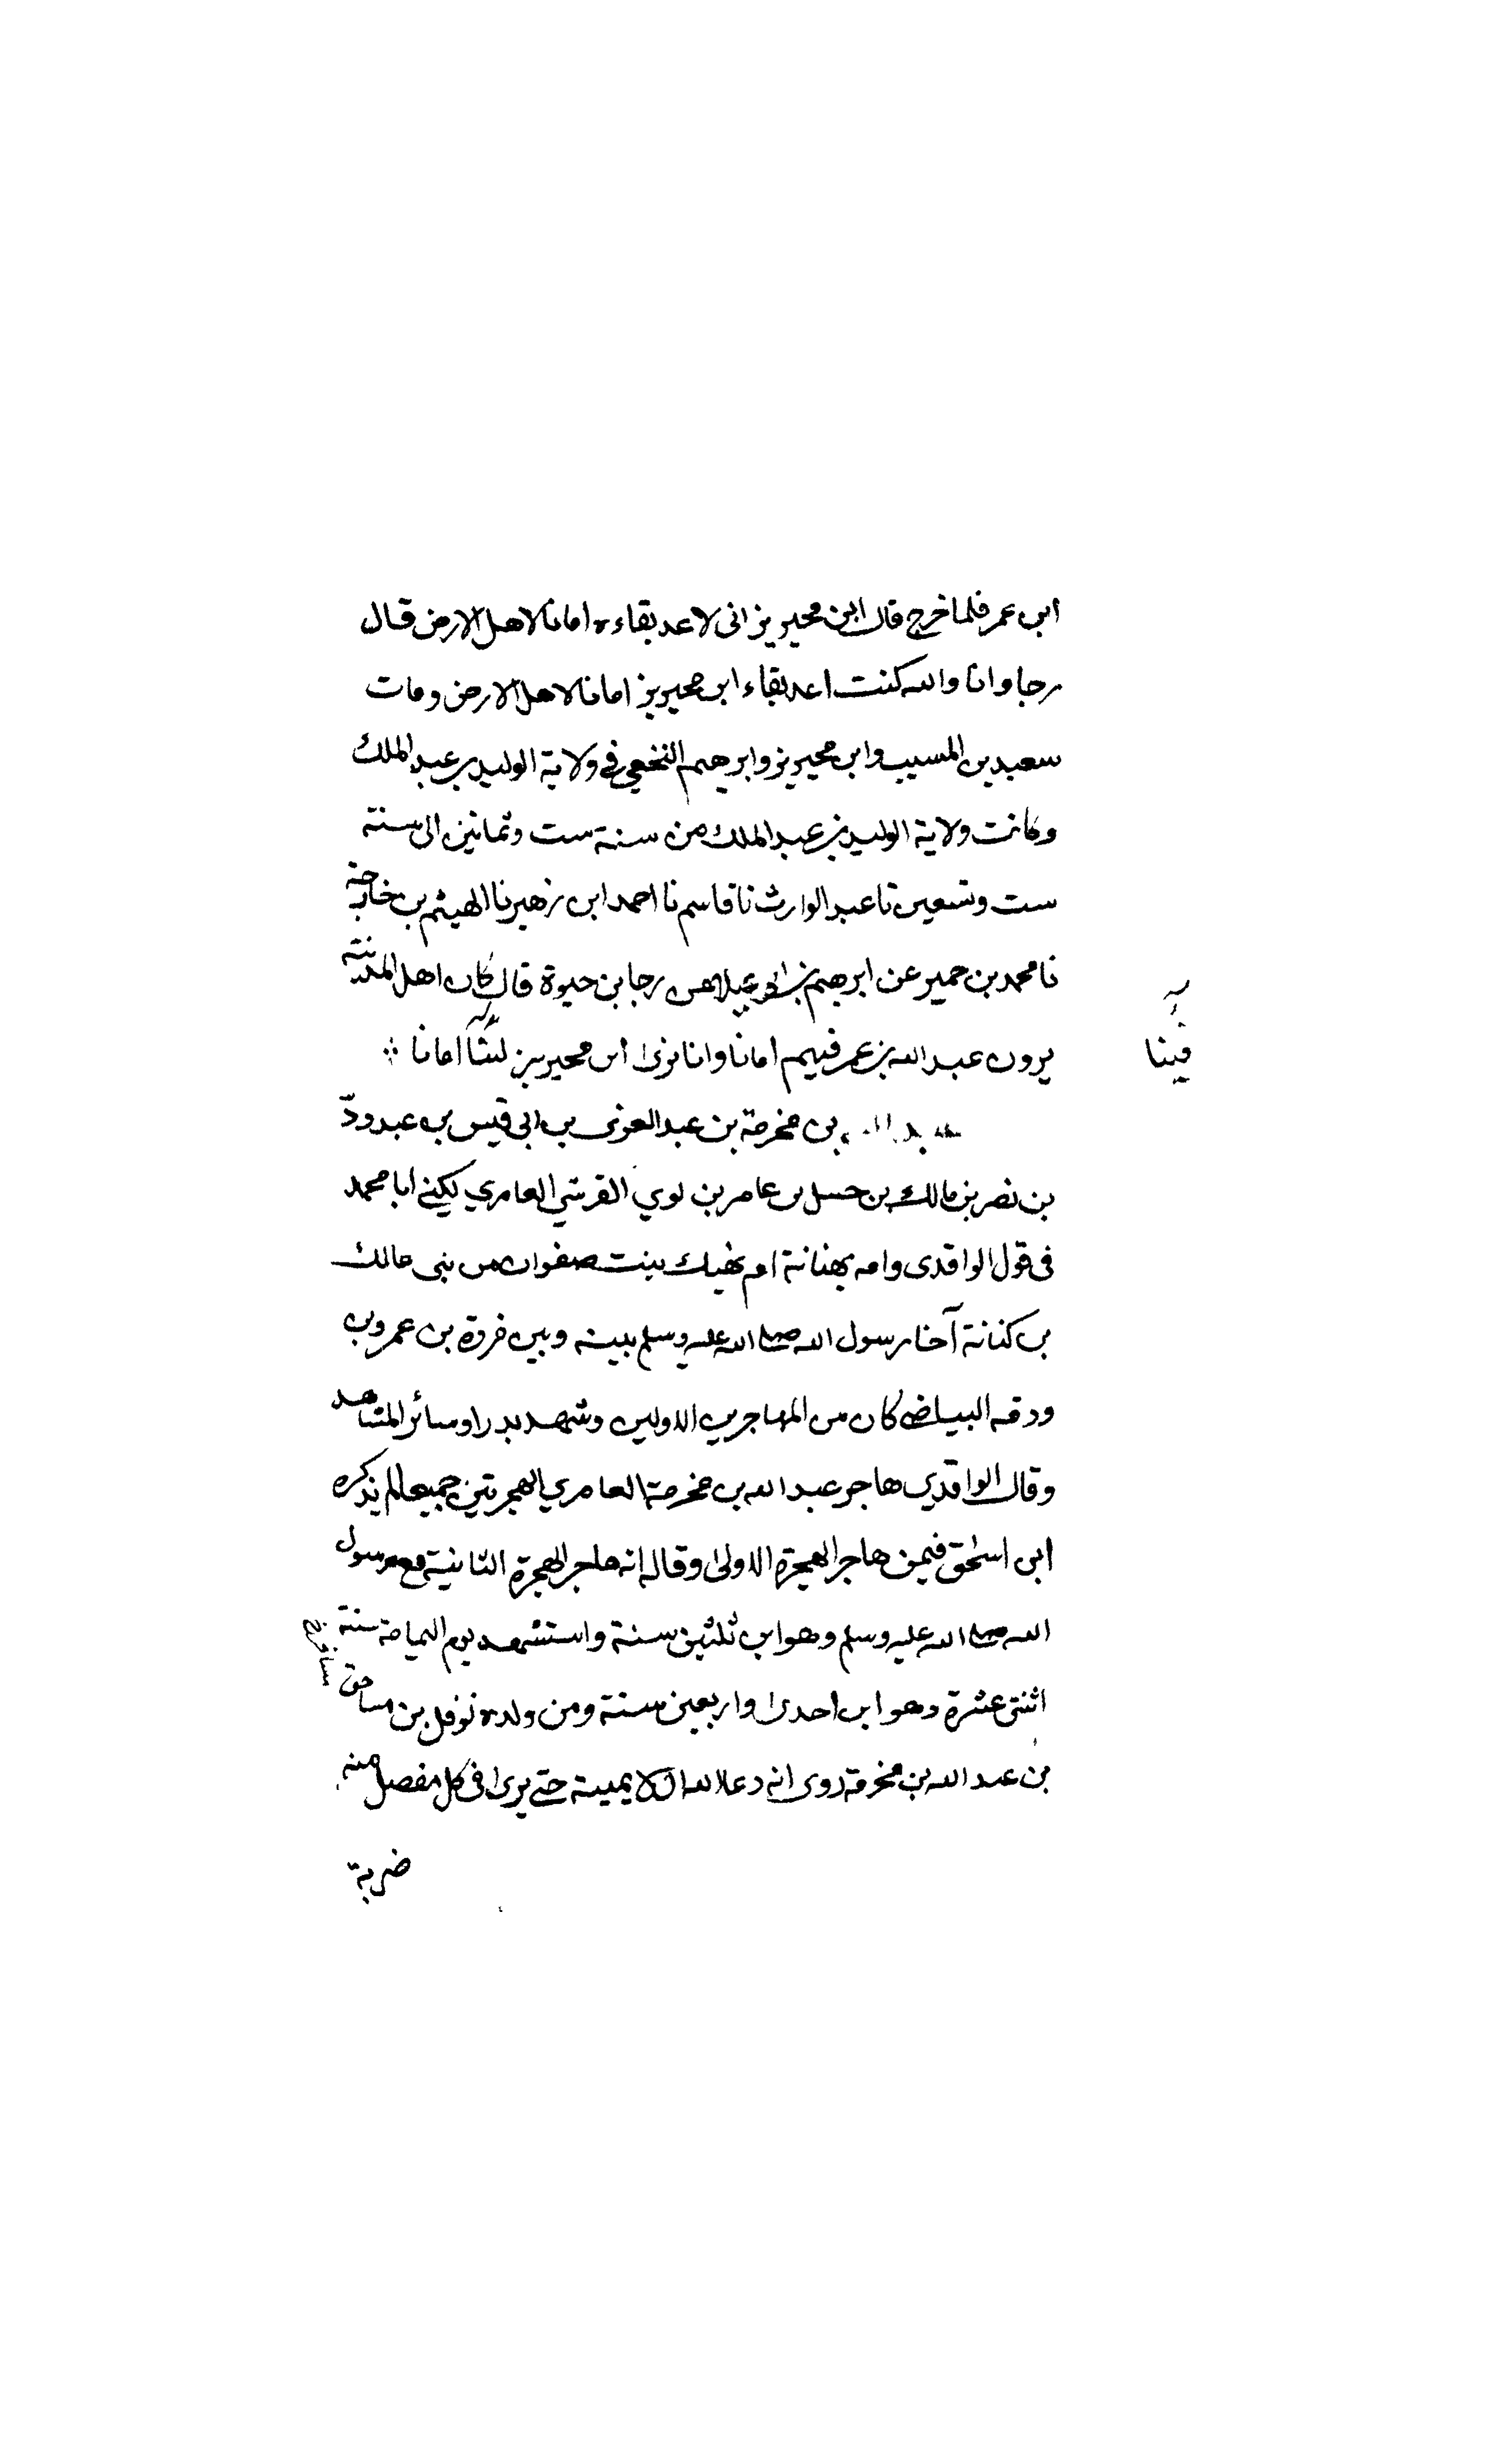 ابن عمر فلما خرج قال ابن محيريز انى لاعد بقاءه امانا لاهل الارض قال
رجا وانا والله كنت اعد بقاء ابن محيريز امانا لاهل الارض ومات
سعيد بن المسيب وابن محيريز وابرهيم النخعي في ولاية الوليد بن عبد الملك
وكانت ولاية الوليد بن عبد الملك من سنة ست وثمانين الى سنة
ست وتسعين نا عبد الوارث نا قاسم نا احمد ابن زهير نا الهيثم بن خارجة
نا محمد بن حمير عن ابرهيم بن ابي عبلة عن رجا بن حيوة قال كان اهل المدينة
يرون عبد الله بن عمر فيهم امانا وانا نرى ابن محيريز امانا
فينا
بن مخرمة بن عبد العزى بن ابي قيس بن عبد ودّ
بن نصر بن مالك بن حسل بن عامر بن لوي القرشي العامري يكنى ابا محمد
فى قول الواقدى وامه بهنانة ام نهيك بنت صفوان من بنى مالك
بن كنانة آخا رسول الله صلى الله عليه وسلم بينه وبين فروة بن عمرو بن
ودقه البياضى كان من المهاجرين الاولين وشهد بدرا وسائر المشاهد
وقال الواقدي هاجر عبد الله بن مخرمة العامري الهجرتين جميعا لم يذكره
ابن اسحق فيمن هاجر الهجرة الاولى وقال انه هاجر الهجرة الثانية مع رسول
الله صلى الله عليه وسلم وهو ابن ثلثين سنة واستشهد يوم اليمامة سنة
اثنتى عشرة وهو ابن احدى واربعين سنة ومن ولده نوفل بن مساحق
بن عبد الله بن مخرمة روى انه دعا الله الا يميته حتى يرى فى كل مفصل منه
ضربة